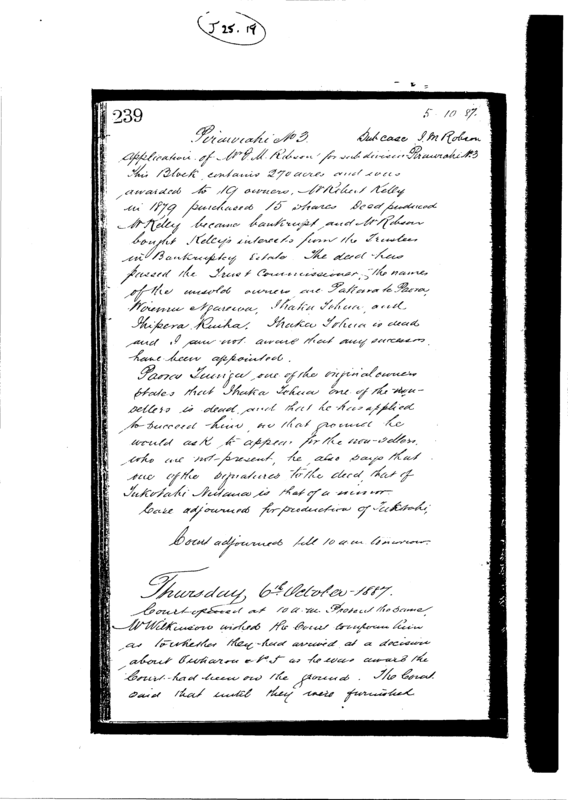 J 25. 19
239
5. 10 87.
Pirauraahi No 3. Subcase J. M Robson
Application of Mr J. M. Robson for subdivision Pirauraahi No 3
This Block contains 270 acres and was
awarded to 19 owners. Mr Robert Kelly
in 1879 purchased 15 shares Deed produced
Mr Kelly became bankrupt and Mr Robson
bought Kelly's interests from the Trustees
in Bankruptcy Estate The deed has
passed the Trust Commissioner, the names
of the unsold owners are Paora,
Wiremu, Ihaka Tohua, and
Ihipera. Ihaka Tohua is dead
and I am not aware that any successors
have been appointed.
Paora one of the original owners
states that Ihaka Tohua one of the non-
sellers is dead, and that he has applied
to succeed him, on that ground he
would ask to appear for the non-sellers
who are not present, he also says that
one of the signatures to the deed that of
Tukotahi is that of a minor
Case adjourned for production of Tukotahi.
Court adjourned till 10 a.m tomorrow.
Thursday, 6th October 1887.
Court opened at 10 a.m. Present the same.
Mr Wilkinson wished the Court to inform him
as to whether they had arrived at a decision
about Owharoa No 5 as he was aware the
Court had been on the ground. The Court
said that until they were furnished